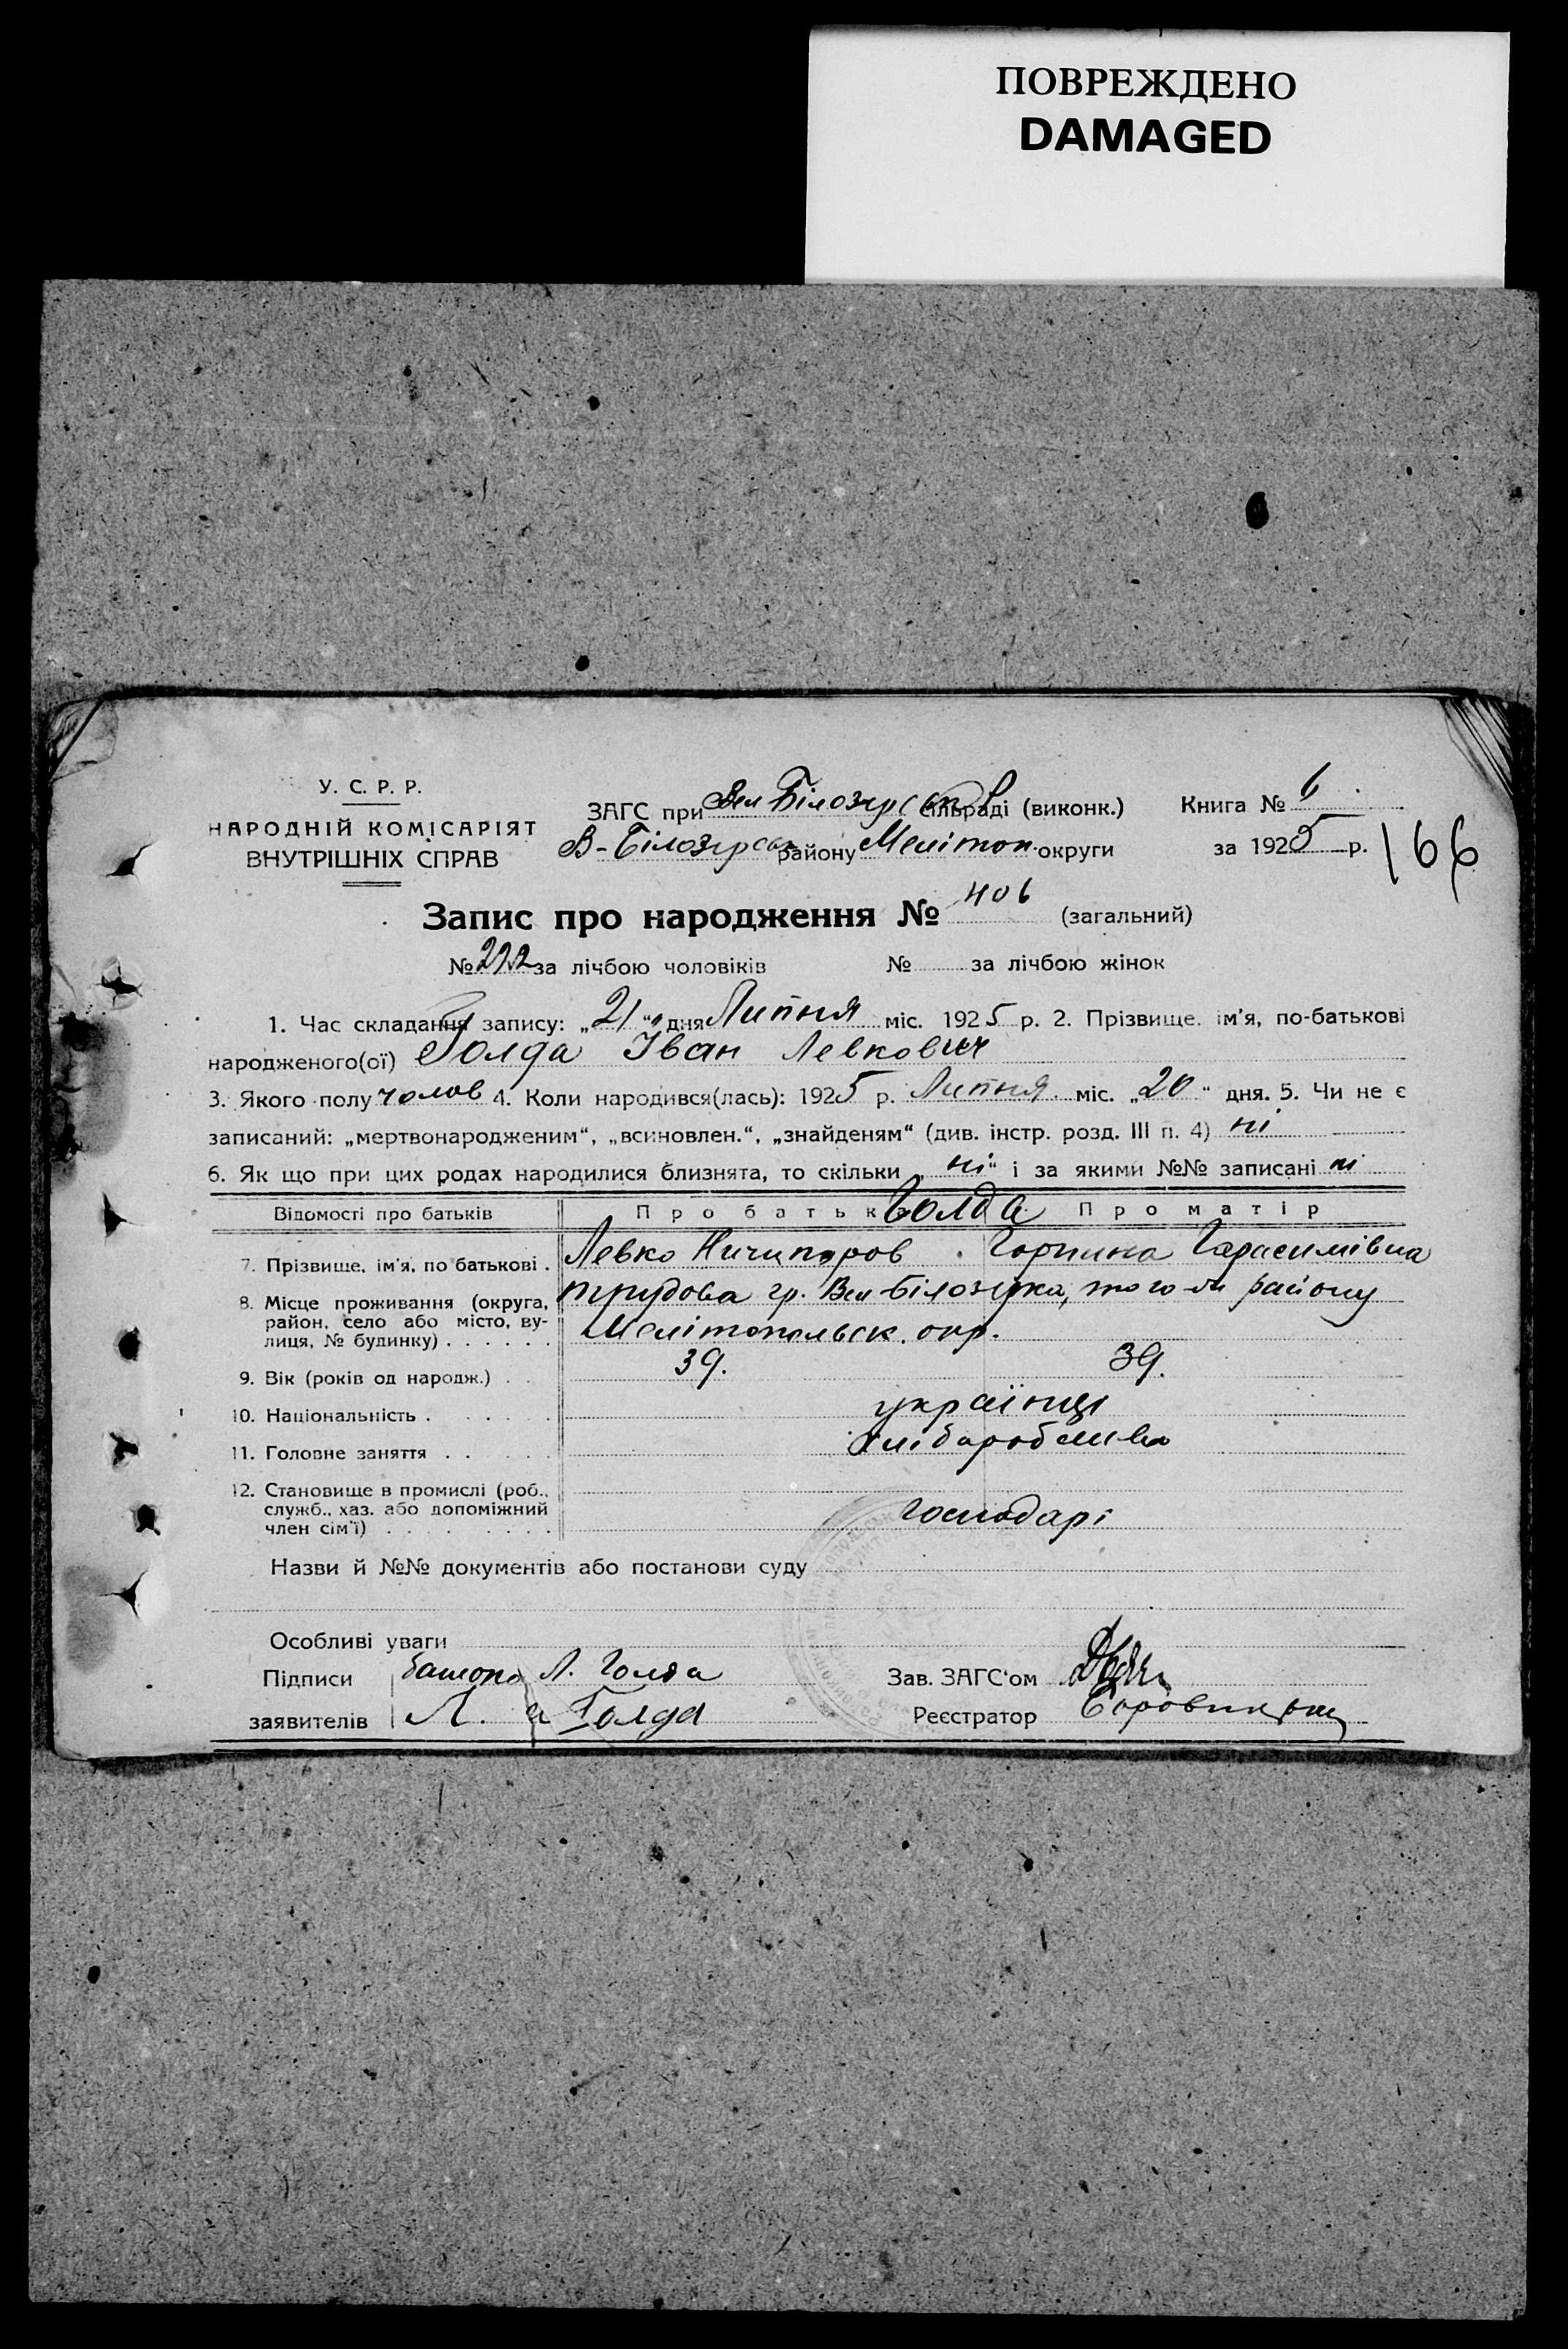 ПОВРЕЖДЕНО
DAMAGED
У. С. Р. Р.
НАРОДНІЙ КОМІСАРІЯТ
ВНУТРІШНІХ СПРАВ
ЗАГС при Вел Білозерськ сільраді (виконк.)
В-Білозерськ району Мелітоп. округи
Книга № 6
за 1925 р.
166
Запис про народження № 406 (загальний)
№ 212 за лічбою чоловіків № за лічбою жінок
1. Час складання запису: „21" дня Липня міс. 1925 р. 2. Прізвище, ім'я, по-батькові
народженого(ої) Голда Іван Левкович
3. Якого полу чолов 4. Коли народився(лась): 1925 р. Липня міс. „20" дня. 5. Чи не є
записаний: „мертвонародженим", „всиновлен.", „знайденям" (див. інстр. розд. III п. 4) ні
6. Як що при цих родах народилися близнята, то скільки „ні" і за якими №№ записані ні
Відомості про батьків Про батька Голда Про матір
7. Прізвище, ім'я, по батькові . Левко Ничипоров . Горпина Гарасимівна
8. Місце проживання (округа, район, село або місто, вулиця, № будинку) . . . . . . трудова гр. Вел Білозерка, того-ж району
Мелітопольськ. окр.
9. Вік (років од народж.) . . 39. 39.
10. Національність . . . . . . українці
11. Головне заняття . . . . . хліборобство
12. Становище в промислі (роб., служб., хаз. або допоміжний член сім'ї) . . . . . . . . господарі
Назви й №№ документів або постанови суду
Особливі уваги
Підписи батько Л. Голда Зав. ЗАГС'ом
заявителів Л. Голда Реєстратор